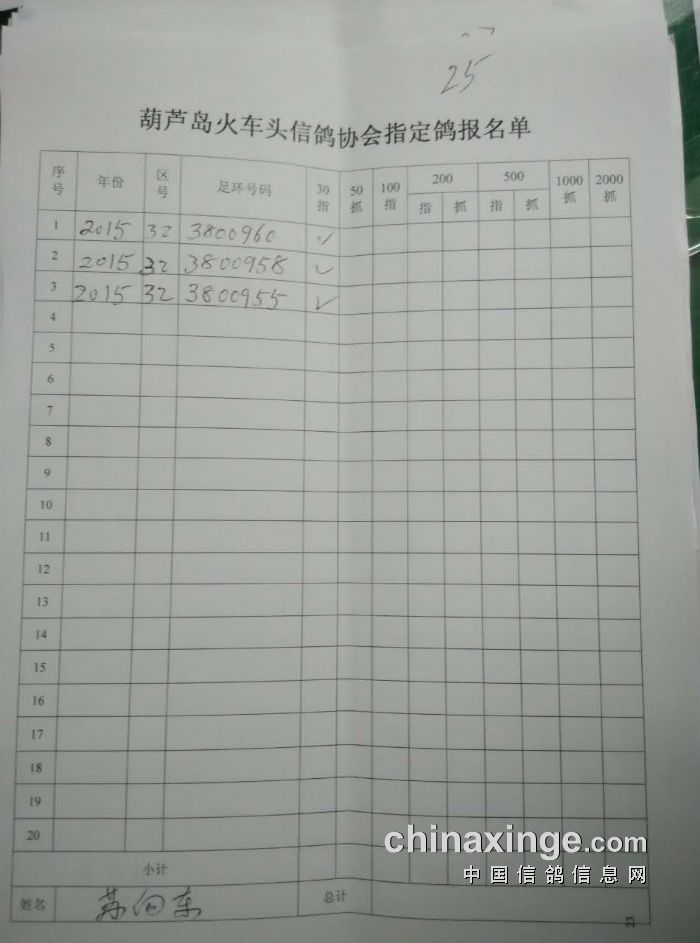 25
葫芦岛火车头信鸽协会指定鸽报名单
序号 年份 区号 足环号码 30指 50抓 100指 200 500 1000抓 2000抓
指 抓 指 抓
1 2015 32 3800960 ✓
2 2015 32 3800958 ✓
3 2015 32 3800955 ✓
4
5
6
7
8
9
10
11
12
13
14
15
16
17
18
19
20
小计
姓名 苏向东 总计
chinaxinge.com
中国信鸽信息网
23